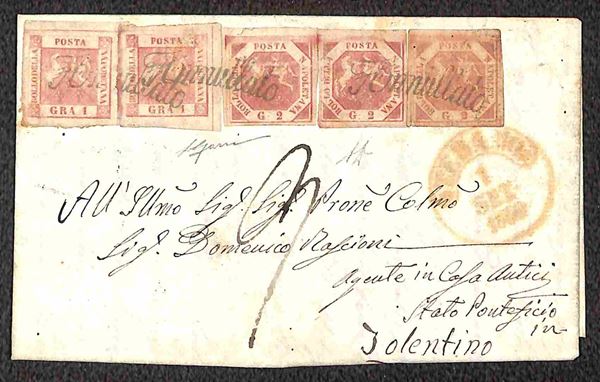 POSTA POSTA POSTA POSTA POSTA
BOLLO DELLA NAPOLETANA BOLLO DELLA NAPOLETANA BOLLO DELLA NAPOLETANA BOLLO DELLA NAPOLETANA BOLLO DELLA NAPOLETANA
Annullato Annullato Annullato
GRA 1 GRA 1 G. 2 G. 2 G. 2
9
All' Illmo Sig. Sig. Prone Colmo
Sig. Domenico Mascioni
Agente in Casa Antici
Stato Pontificio
in
Tolentino